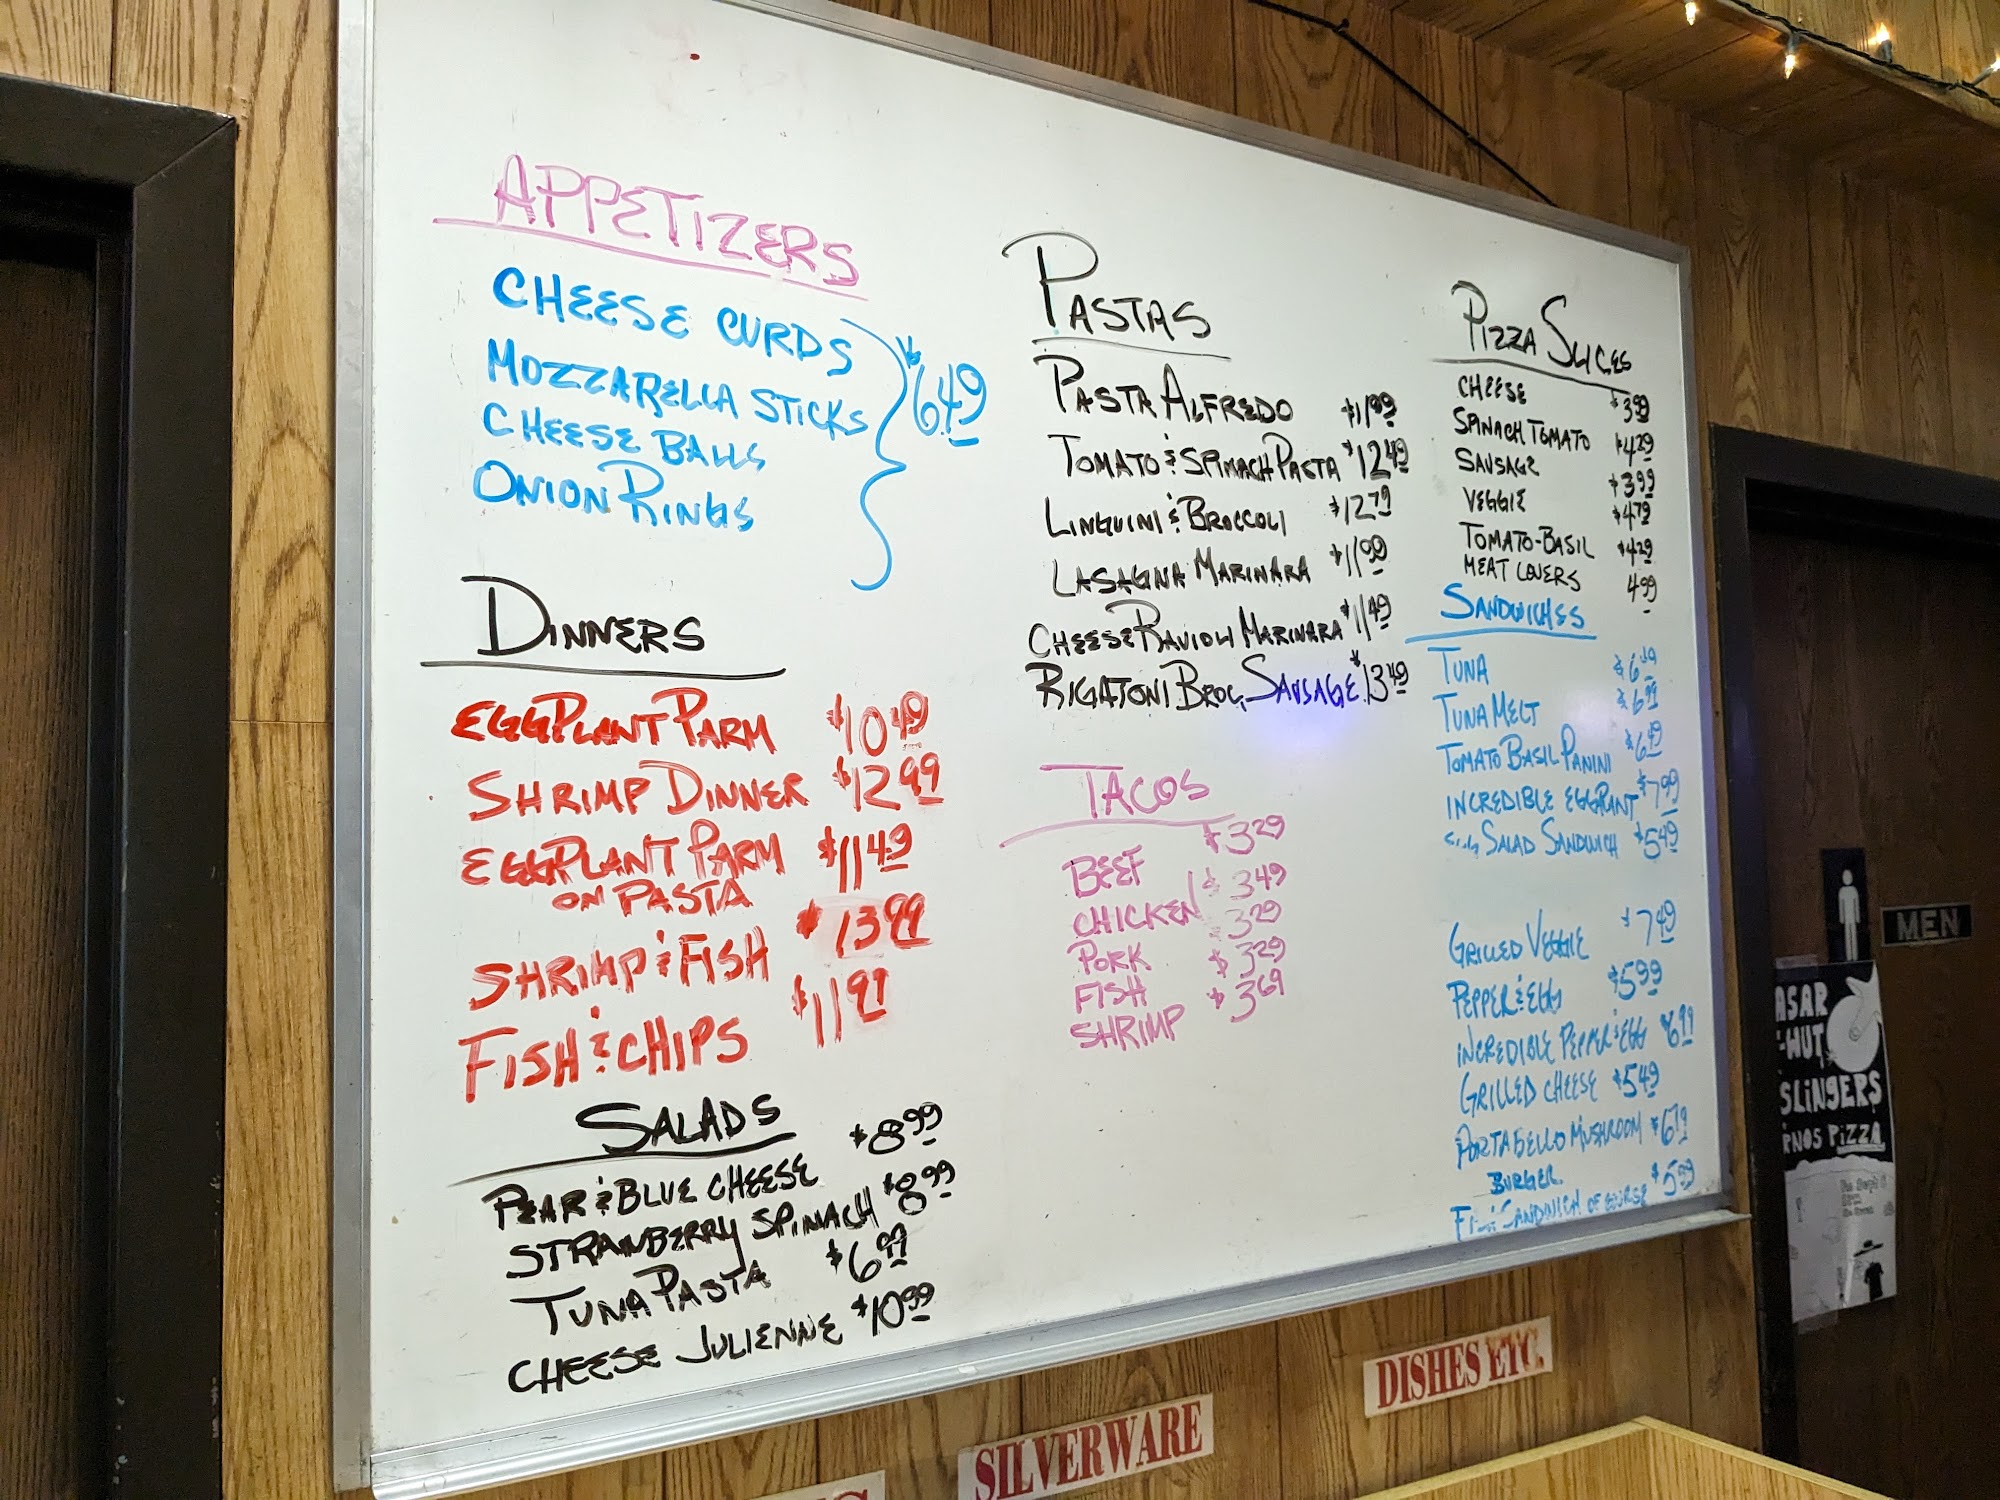 APPETIZERS
CHEESE CURDS
MOZZARELLA STICKS
CHEESE BALLS
ONION RINGS
$6.49
DINNERS
EGGPLANT PARM $10.49
SHRIMP DINNER $12.99
EGGPLANT PARM $11.49
ON PASTA
SHRIMP & FISH $13.99
FISH & CHIPS $11.99
SALADS
PEAR & BLUE CHEESE $8.99
STRAWBERRY SPINACH $8.99
TUNA PASTA $6.99
CHEESE JULIENNE $10.99
PASTAS
PASTA ALFREDO $11.99
TOMATO & SPINACH PASTA $12.49
LINGUINI & BROCCOLI $12.79
LASAGNA MARINARA $11.99
CHEESE RAVIOLI MARINARA $11.49
RIGATONI BROC. SAUSAGE $13.49
TACOS
BEEF $3.29
CHICKEN $3.49
PORK 3.29
FISH $3.29
SHRIMP $3.69
PIZZA SLICES
CHEESE $3.99
SPINACH TOMATO $4.29
SAUSAGE $3.99
VEGGIE $4.79
TOMATO-BASIL $4.29
MEAT LOVERS 4.99
SANDWICHES
TUNA
TUNA MELT $6.99
TOMATO BASIL PANINI $6.49
INCREDIBLE EGGPLANT $7.99
SALAD SANDWICH $5.49
GRILLED VEGGIE $7.49
PEPPER & EGG $5.99
INCREDIBLE PEPPER & EGG 6.99
GRILLED CHEESE $5.49
PORTABELLO MUSHROOM $6.79
BURGER
SANDWICH OF COURSE $5.99
MEN
SLINGERS
PIZZA
DISHES ETC.
SILVERWARE